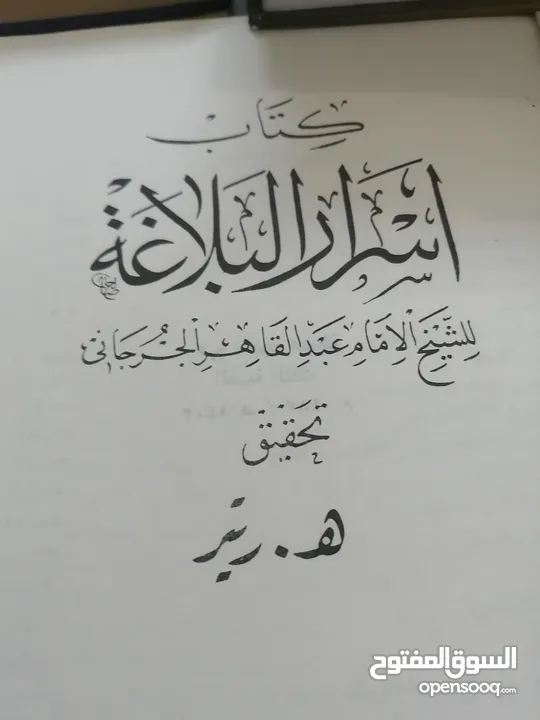 كِتَاب
اسْرَارُ البَلاغَة
لِلشَّيْخِ الإمَامِ عَبْدِ القَاهِرِ الجُرْجَانِي
تَحْقِيق
هـ. ريتر
السوق المفتوح
opensooq.com